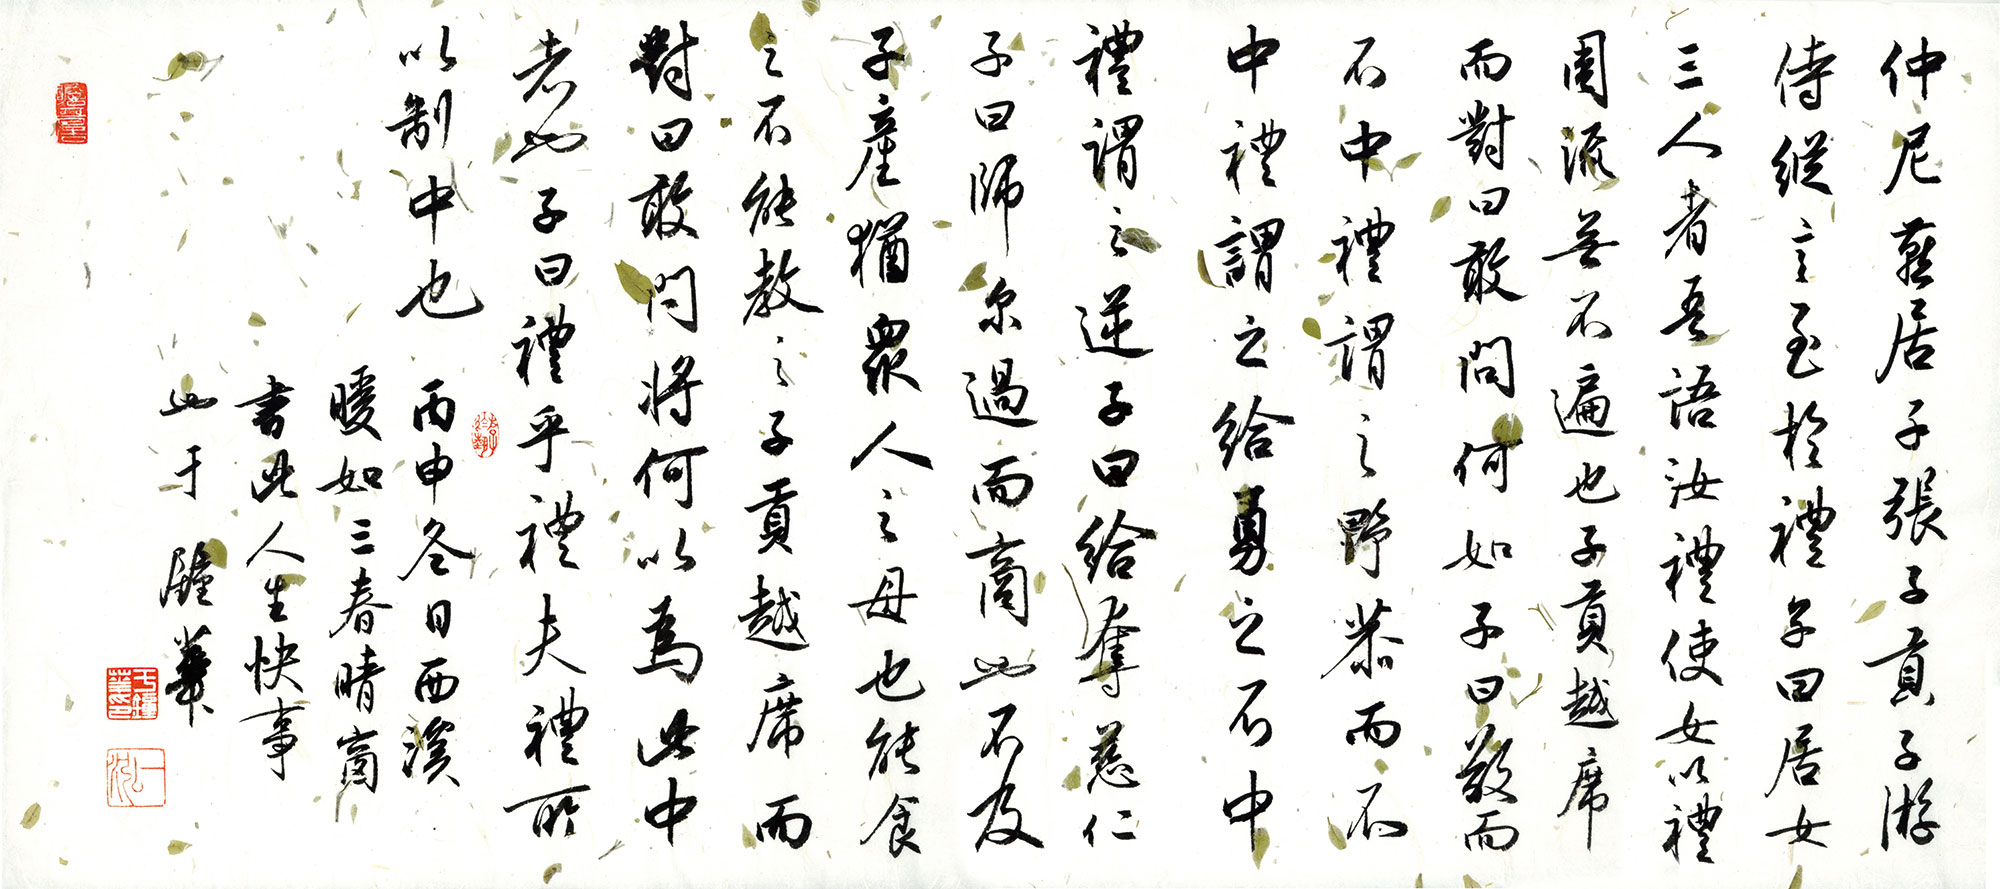 仲尼燕居子張子貢子游
侍縱言至於禮子曰居女
三人者吾語汝禮使女以禮
周流無不遍也子貢越席
而對曰敢問何如子曰敬而
不中禮謂之野恭而不
中禮謂之給勇之不中
禮謂之逆子曰給奪慈仁
子曰師尔過而商也不及
子產猶眾人之母也能食
之不能教之子貢越席而
對曰敢問將何以為此中
者也子曰禮乎禮夫禮所
以制中也
丙申冬日西溪
暖如三春晴窗
書此人生快事
也于鐘華